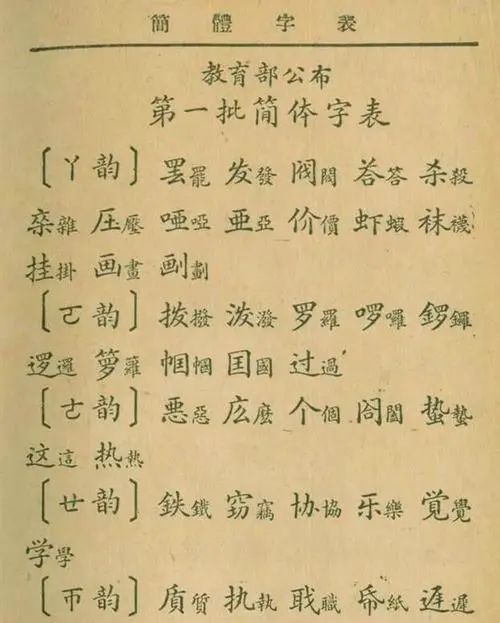 簡體字表
教育部公布
第一批简体字表
〔ㄚ韵〕 罢罷 发發 阀閥 荅答 杀殺
杂雜 压壓 唖啞 亜亞 价價 虾蝦 袜襪
挂掛 画畫 㓰劃
〔ㄛ韵〕 拨撥 泼潑 罗羅 啰囉 锣鑼
逻邏 箩籮 帼幗 囯國 过過
〔ㄜ韵〕 悪惡 庅麼 个個 阁閣 蛰蟄
这這 热熱
〔ㄝ韵〕 鉄鐵 窃竊 协協 乐樂 覚覺
学學
〔ㄭ韵〕 质質 执執 职職 帋紙 迟遲